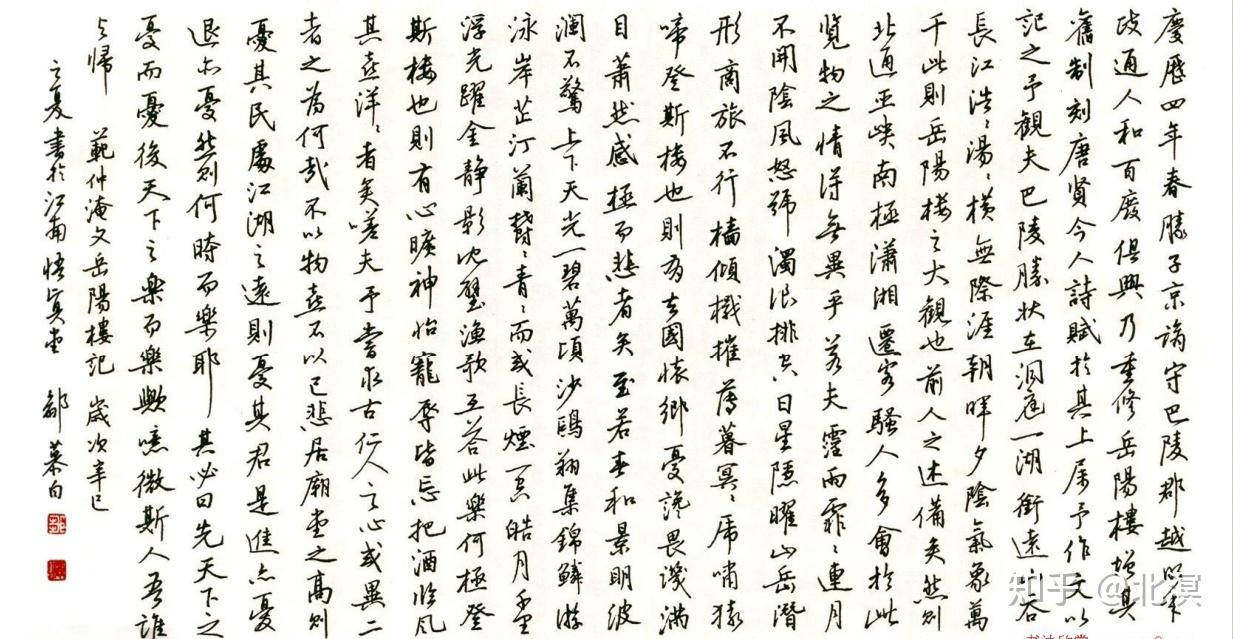 慶曆四年春滕子京謫守巴陵郡越明年
政通人和百廢俱興乃重修岳陽樓增其
舊制刻唐賢今人詩賦於其上屬予作文以
記之予觀夫巴陵勝狀在洞庭一湖銜遠山吞
長江浩々湯々橫無際涯朝暉夕陰氣象萬
千此則岳陽樓之大觀也前人之述備矣然則
北通巫峽南極瀟湘遷客騷人多會於此
覽物之情得無異乎若夫霪雨霏々連月
不開陰風怒號濁浪排空日星隱曜山岳潛
形商旅不行檣傾檝摧薄暮冥々虎嘯猿
啼登斯樓也則有去國懷鄉憂讒畏譏滿
目蕭然感極而悲者矣至若春和景明波
瀾不驚上下天光一碧萬頃沙鷗翔集錦鱗游
泳岸芷汀蘭鬱々青々而或長煙一空皓月千里
浮光躍金靜影沈璧漁歌互答此樂何極登
斯樓也則有心曠神怡寵辱皆忘把酒臨風
其喜洋々者矣嗟夫予嘗求古仁人之心或異二
者之為何哉不以物喜不以己悲居廟堂之高則
憂其民處江湖之遠則憂其君是進亦憂
退亦憂然則何時而樂耶其必曰先天下之
憂而憂後天下之樂而樂歟噫微斯人吾誰
与歸 範仲淹文岳陽樓記 歲次辛巳
之夏書於江南悟真堂 慕白
知乎 @北溟